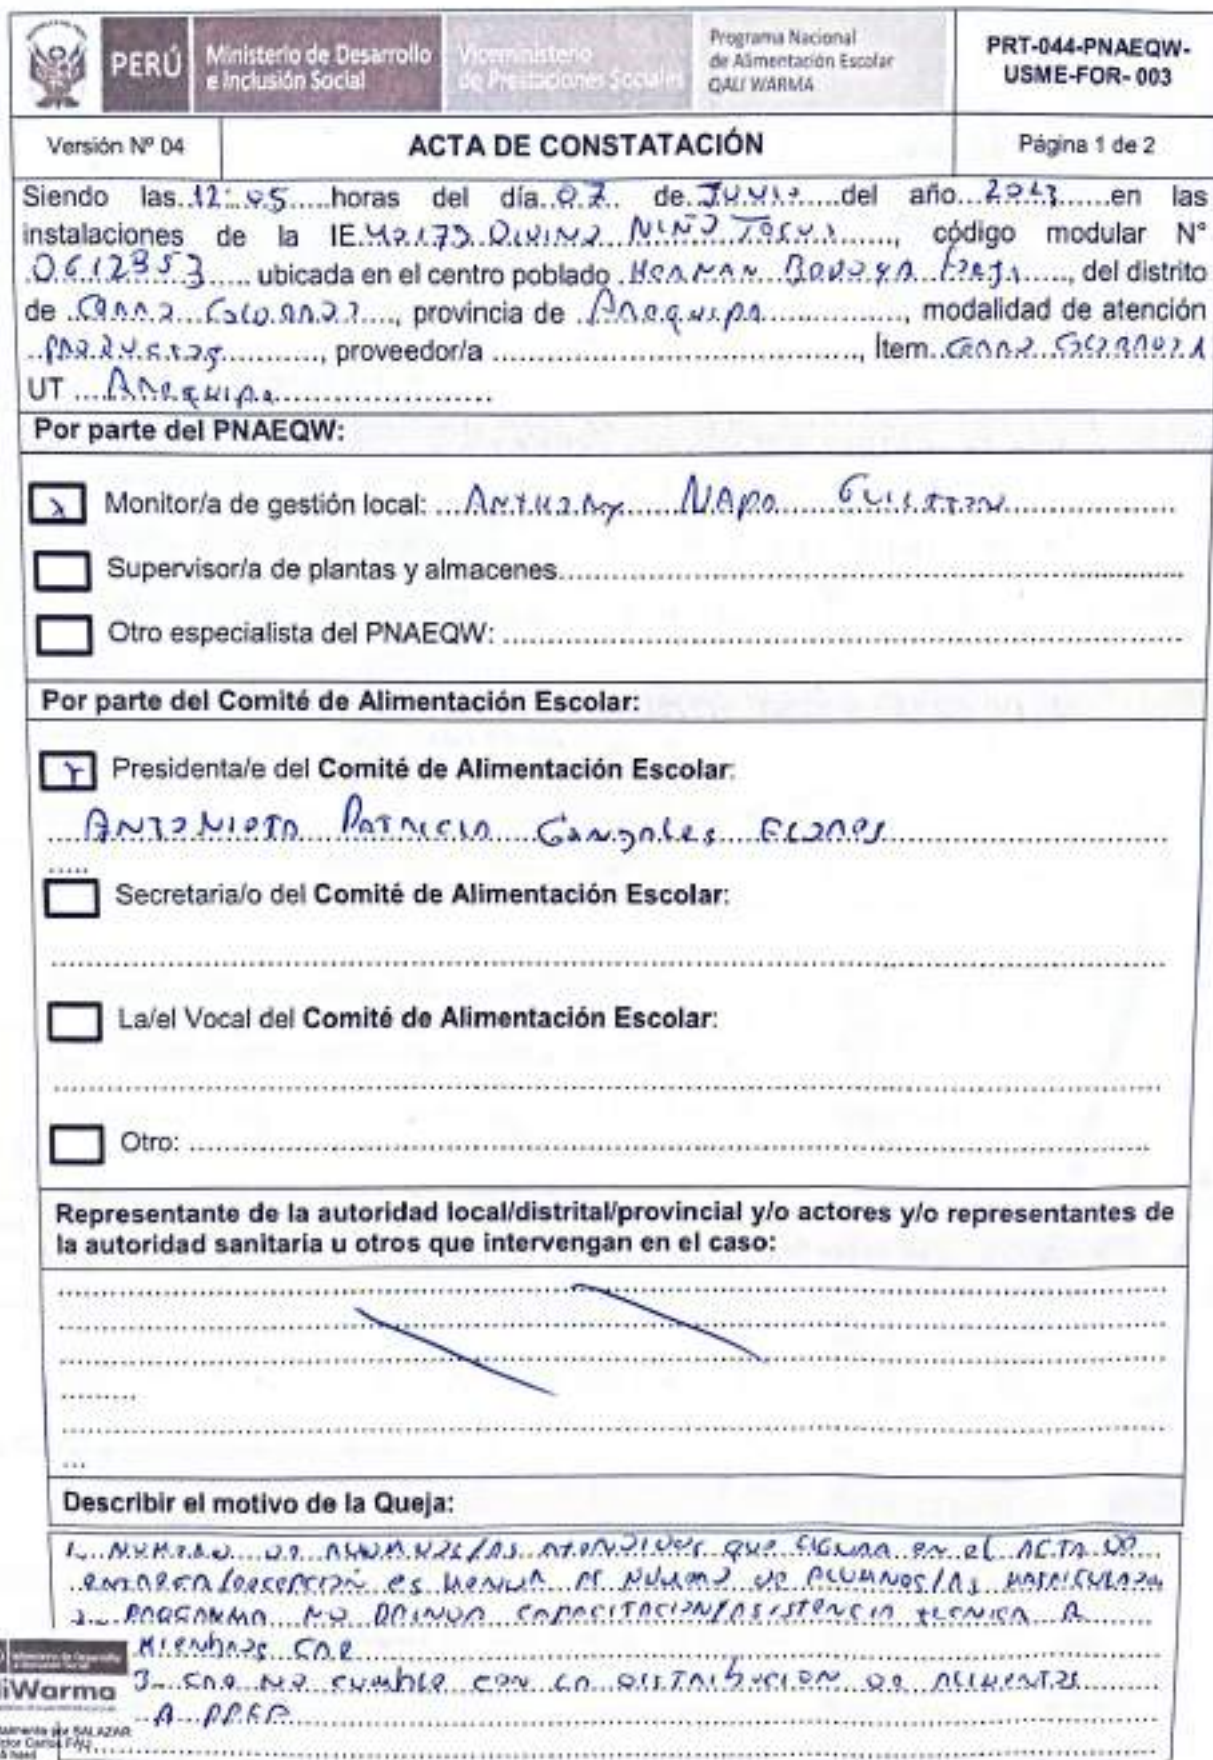 PERÚ
Ministerio de Desarrollo
e Inclusión Social
Viceministerio
de Prestaciones Sociales
Programa Nacional
de Alimentación Escolar
QALI WARMA
PRT-044-PNAEQW-
USME-FOR- 003
Versión Nº 04
ACTA DE CONSTATACIÓN
Página 1 de 2
Siendo las 12:05 horas del día 07 de Junio del año 2023 en las
instalaciones de la IE 40175 Divino Niño Jesus, código modular N°
0612853 ubicada en el centro poblado Hernan Bedoya, del distrito
de Cerro Colorado, provincia de Arequipa, modalidad de atención
productos, proveedor/a, Ítem Cerro Colorado
UT Arequipa
Por parte del PNAEQW:
x Monitor/a de gestión local: Anthony Napa
Supervisor/a de plantas y almacenes
Otro especialista del PNAEQW:
Por parte del Comité de Alimentación Escolar:
Presidenta/e del Comité de Alimentación Escolar:
Antonieta Patricia Gonzales Flores
Secretaria/o del Comité de Alimentación Escolar:
La/el Vocal del Comité de Alimentación Escolar:
Otro:
Representante de la autoridad local/distrital/provincial y/o actores y/o representantes de
la autoridad sanitaria u otros que intervengan en el caso:
Describir el motivo de la Queja:
1. NUMERO DE ALUMNOS/AS ATENDIDOS QUE FIGURA EN EL ACTA DE
ENTREGA/RECEPCIÓN ES MENOR AL NUMERO DE ALUMNOS/AS MATRICULADOS
2. PROGRAMA NO BRINDA CAPACITACION/ASISTENCIA TECNICA A
MIEMBROS CAE
3. CAE NO CUMPLE CON LA DISTRIBUCION DE ALIMENTOS
A PPFF
iWarma
por SALAZAR
Carlos FAU